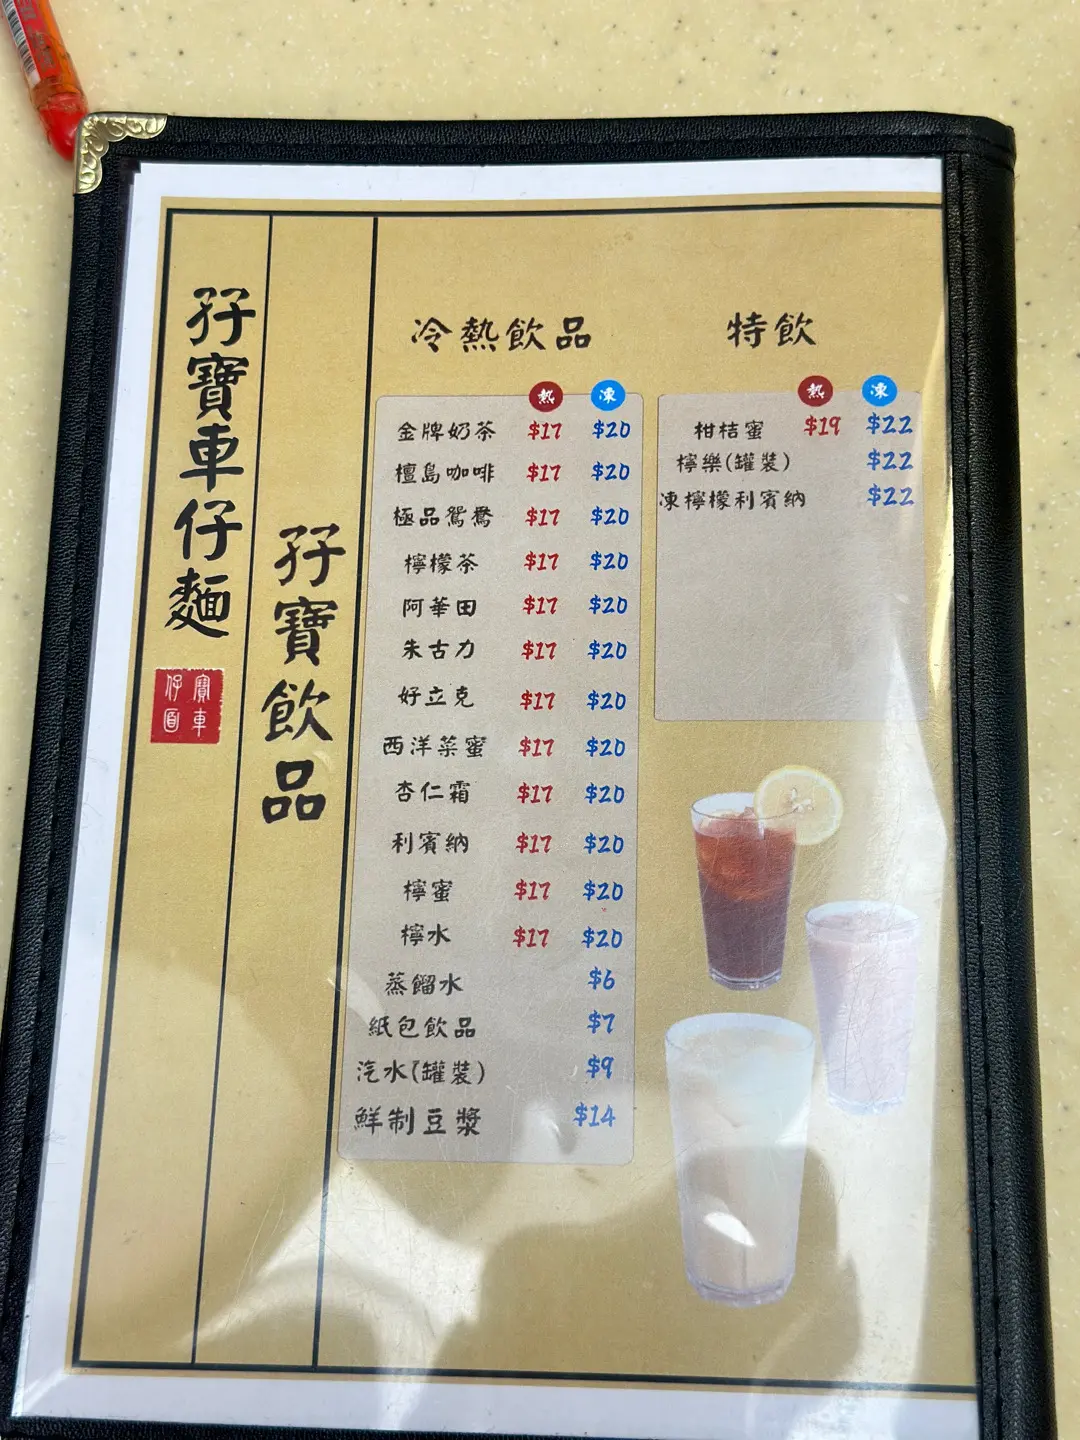 孖寶車仔麵
仔寶
面車
孖寶飲品
冷熱飲品
熱 凍
金牌奶茶 $17 $20
檀島咖啡 $17 $20
極品鴛鴦 $17 $20
檸檬茶 $17 $20
阿華田 $17 $20
朱古力 $17 $20
好立克 $17 $20
西洋菜蜜 $17 $20
杏仁霜 $17 $20
利賓納 $17 $20
檸蜜 $17 $20
檸水 $17 $20
蒸餾水 $6
紙包飲品 $7
汽水(罐裝) $9
鮮制豆漿 $14
特飲
熱 凍
柑桔蜜 $19 $22
檸樂(罐裝) $22
凍檸檬利賓納 $22